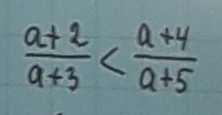 (a+2)/(a+3) < (a+4)/(a+5)